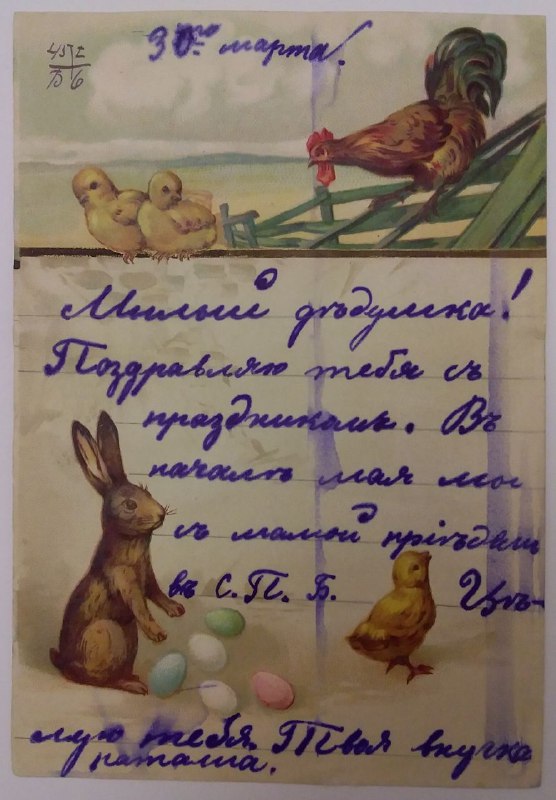 30го марта!
Милый дѣдушка!
Поздравляю тебя съ
праздникамъ. Въ
началѣ мая мы
съ мамой пріѣдемъ
въ С. П. Б. Цѣ-
лую тебя. Твоя внучка
наталиа.